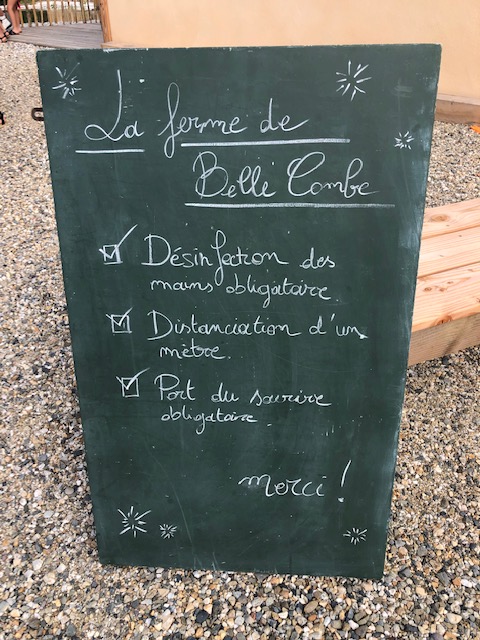 La ferme de
Belle Combe
Désinfection des
mains obligatoire.
Distanciation d'un
mètre.
Port du sourire
obligatoire.
merci !